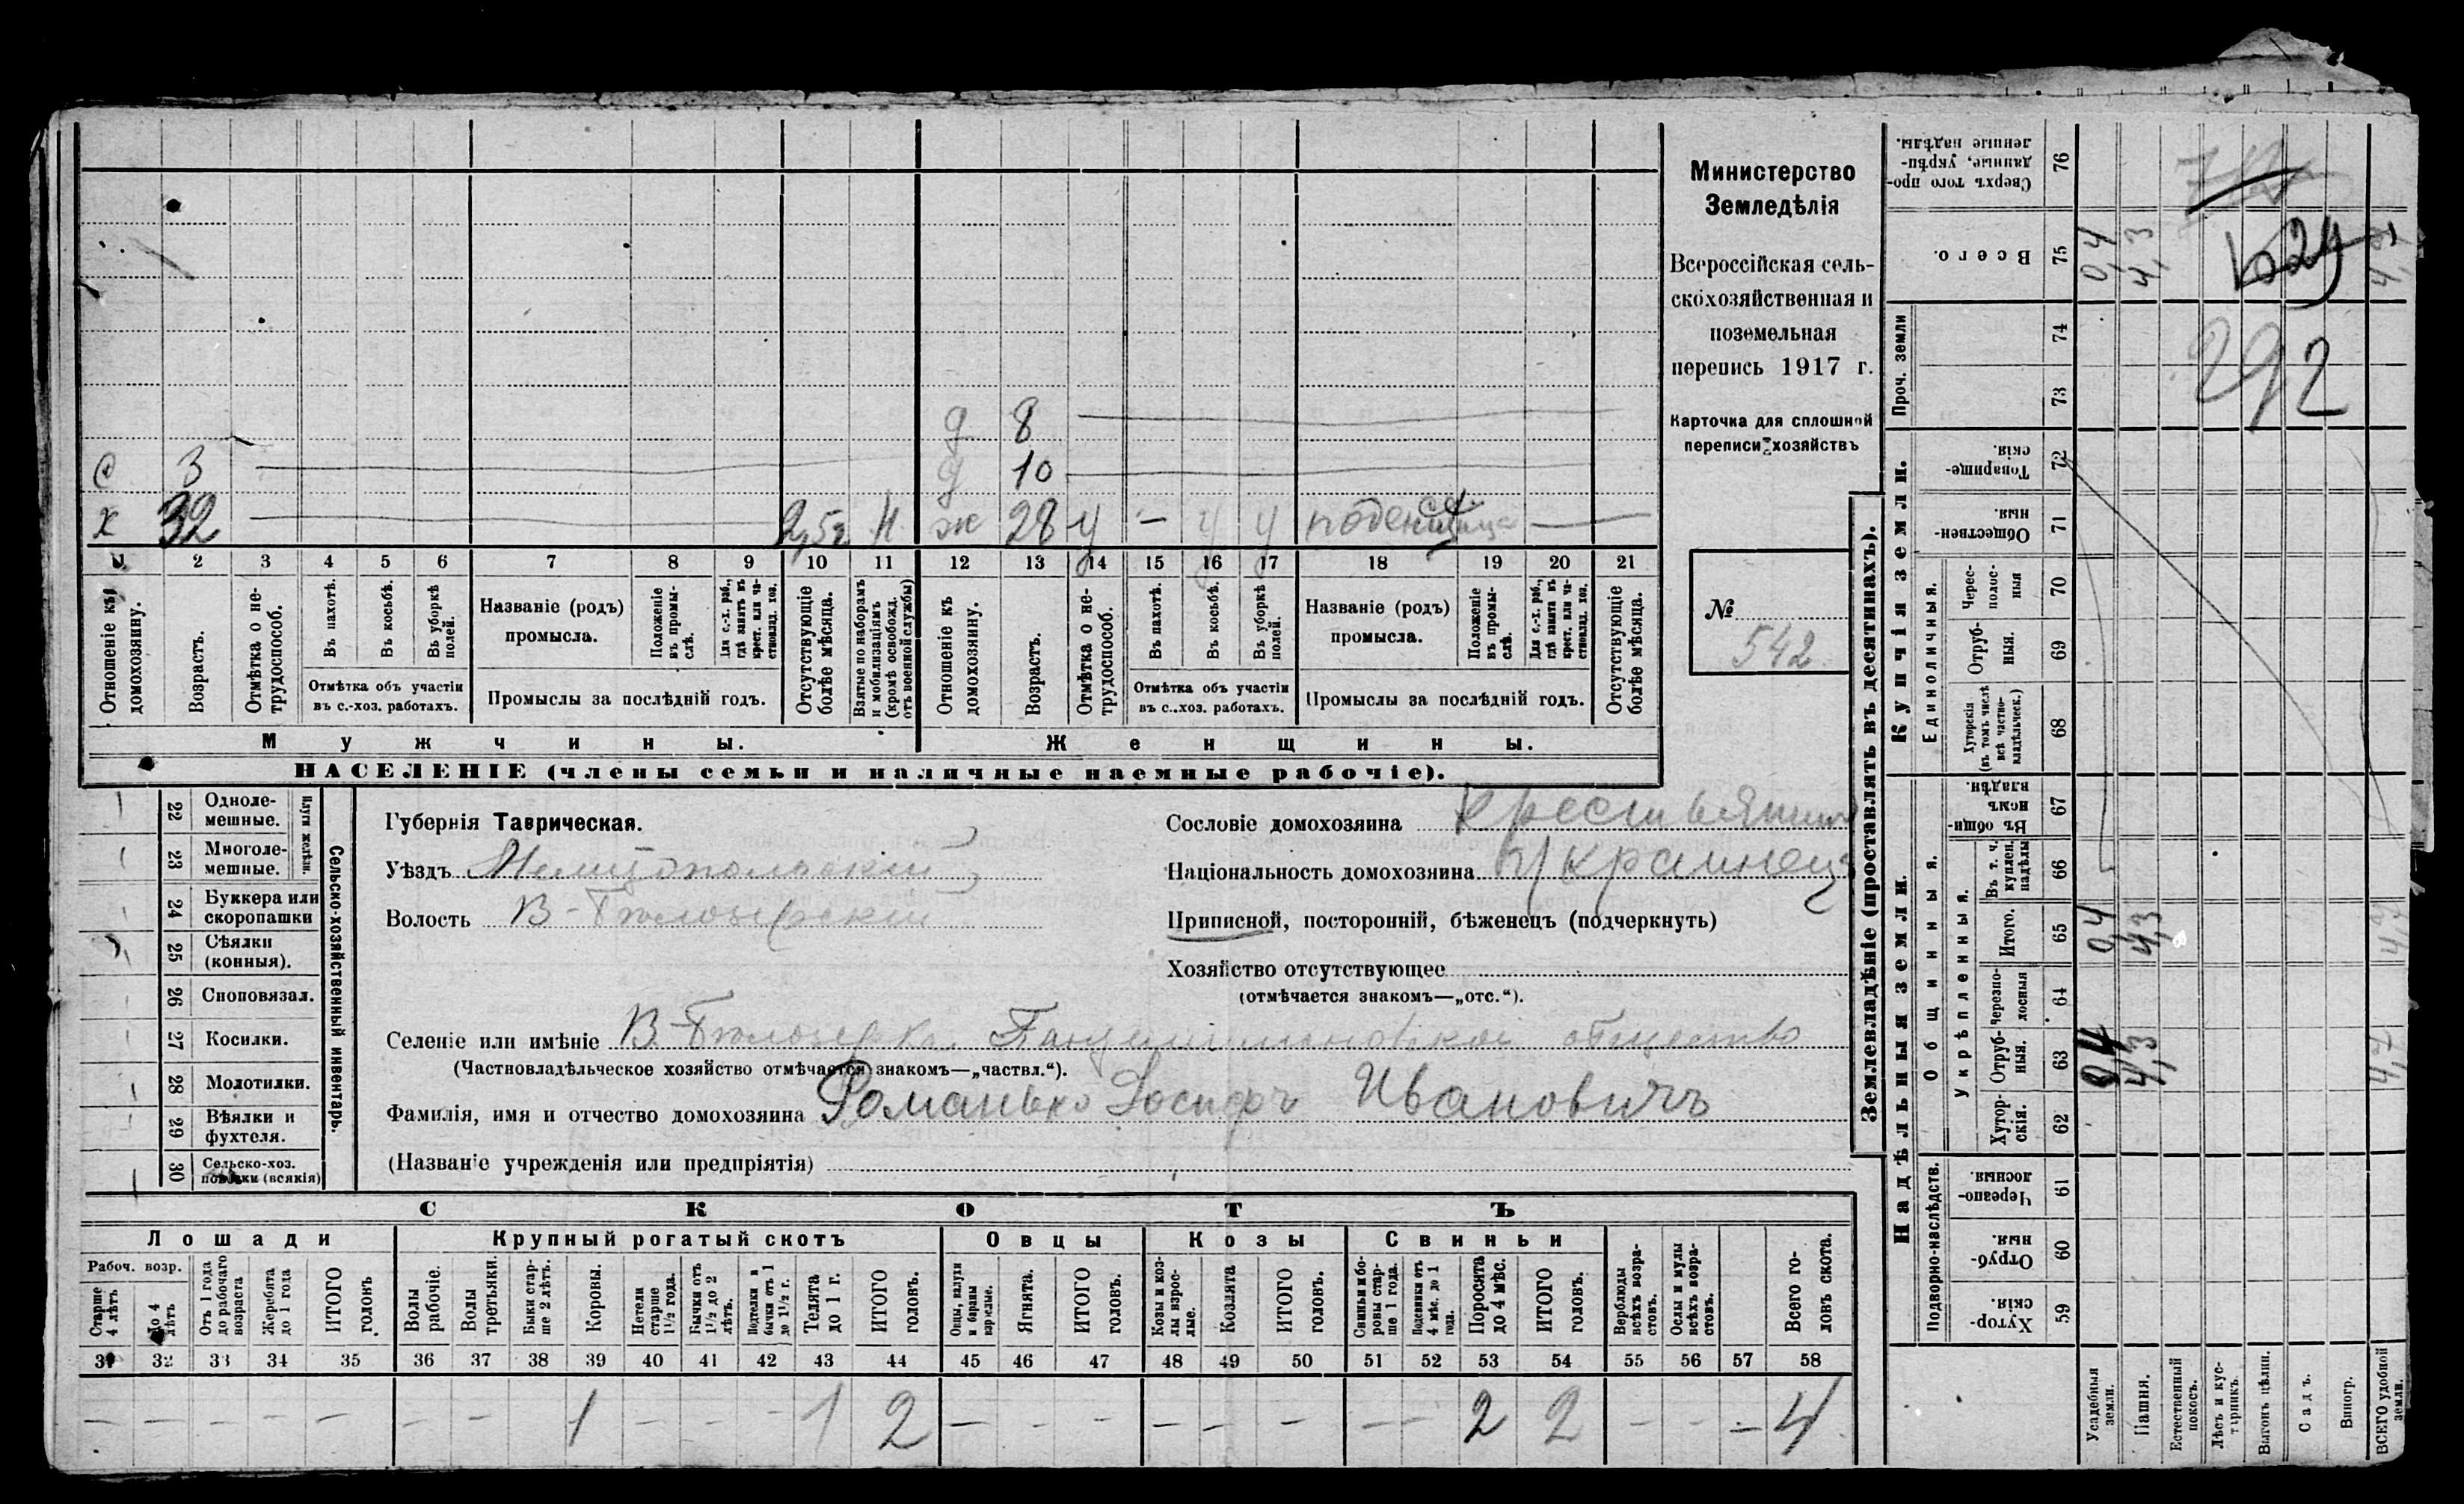 Министерство
Земледѣлія
Всероссійская сель-
скохозяйственная и
поземельная
перепись 1917 г.
Карточка для сплошной
переписи хозяйствъ
№
542
д 8
С 3 д 10
х 32 Н ж 28 у — у у поденщица —
1 2 3 4 5 6 7 8 9 10 11 12 13 14 15 16 17 18 19 20 21
Отношеніе къ домохозяину.
Возрастъ.
Отмѣтка о не-трудоспособ.
Въ пахотѣ.
Въ косьбѣ.
Въ уборкѣ полей.
Отмѣтка объ участіи
въ с.-хоз. работахъ.
Названіе (родъ)
промысла.
Положеніе въ промы-слѣ.
Для с.-х. раб., гдѣ занятъ въ крест. или ча-стновлад. хоз.
Промыслы за послѣдній годъ.
Отсутствующіе болѣе мѣсяца.
Взятые по наборамъ и мобилизаціямъ (кромѣ освобожд. отъ военной службы)
Отношеніе къ домохозяину.
Возрастъ.
Отмѣтка о не-трудоспособ.
Въ пахотѣ.
Въ косьбѣ.
Въ уборкѣ полей.
Отмѣтка объ участіи
въ с.-хоз. работахъ.
Названіе (родъ)
промысла.
Положеніе въ промы-слѣ.
Для с.-х. раб., гдѣ занята въ крест. или ча-стновлад. хоз.
Промыслы за послѣдній годъ.
Отсутствующіе болѣе мѣсяца.
Мужчины.
Женщины.
НАСЕЛЕНІЕ (члены семьи и наличные наемные рабочіе).
Сельско-хозяйственный инвентарь.
Плуги желѣзн.
22 Одноле-мешные.
23 Многоле-мешные.
24 Буккера или скоропашки
25 Сѣялки (конныя).
26 Сноповязал.
27 Косилки.
28 Молотилки.
29 Вѣялки и фухтеля.
30 Сельско-хоз. повозки (всякія)
Губернія Таврическая.
Уѣздъ Мелитопольскій
Волость В-Бѣлозерская
Сословіе домохозяина Крестьянинъ
Національность домохозяина Украинецъ
Приписной, посторонній, бѣженецъ (подчеркнуть)
Хозяйство отсутствующее
(отмѣчается знакомъ—„отс.“).
Селеніе или имѣніе В-Бѣлозерка общество
(Частновладѣльческое хозяйство отмѣчается знакомъ—„частвл.“).
Фамилія, имя и отчество домохозяина Романько Іосифъ Ивановичъ
(Названіе учрежденія или предпріятія)
СКОТЪ
Лошади
Крупный рогатый скотъ
Овцы
Козы
Свиньи
Рабоч. возр.
Старше 4 лѣтъ
До 4 лѣтъ
Отъ 1 года до рабочаго возраста
Жеребята до 1 года
ИТОГО головъ
Волы рабочіе.
Волы третьяки.
Быки стар-ше 2 лѣтъ.
Коровы.
Нетели старше 1½ года.
Бычки отъ 1½ до 2 лѣтъ.
Подтелки и бычки отъ 1 до 1½ г.
Телята до 1 г.
ИТОГО головъ.
Овцы, валухи и бараны взрослые.
Ягнята.
ИТОГО головъ.
Козы и коз-лы взрос-лые.
Козлята
ИТОГО головъ.
Свиньи и бо-ровы стар-ше 1 года.
Подсвинки отъ 4 мѣс. до 1 года.
Поросята до 4 мѣс.
ИТОГО головъ.
Верблюды всѣхъ возра-стовъ.
Ослы и мулы всѣхъ возра-стовъ.
Всего го-ловъ скота.
31 32 33 34 35 36 37 38 39 40 41 42 43 44 45 46 47 48 49 50 51 52 53 54 55 56 57 58
— — — — — — — 1 — — — 1 2 — — — — — — — — 2 2 — — — 4
Землевладѣніе (проставлять въ десятинахъ).
Купчія земли.
Единоличныя.
Надѣльныя земли.
Общинныя.
Укрѣпленныя.
Подворно-наслѣдств.
Проч. земли
76 Сверхъ того про-данные, укрѣп-ленные надѣлы.
75 Всего.
74
73
72 Товарище-скія.
71 Обществен-ныя.
70 Черес-полос-ныя
69 Отруб-ныя.
68 Хуторскія (въ томъ числѣ всѣ частно-владѣльческ.)
67 Въ общи-номъ владѣн
66 Въ т. ч. куплен. надѣлы
65 Итого.
64 Черезпо-лосныя
63 Отруб-ныя.
62 Хутор-скія.
61 Черезпо-лосныя
60 Отруб-ныя.
59 Хутор-скія.
0,4 4,3
292
0,4 4,3
0,4 4,3 4,7
Усадебныя земли.
Пашня.
Естественный покосъ.
Лѣсъ и кус-тарникъ.
Выгонъ цѣлин.
Садъ.
Виногр.
ВСЕГО удобной земли.